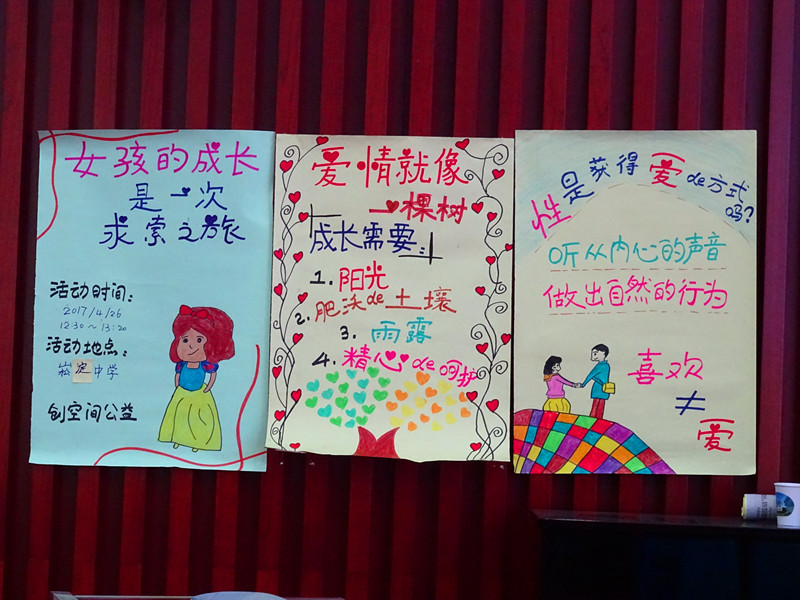 女孩的成长
是一次
求索之旅
活动时间：
2017/4/26
12:30～13:20
活动地点：
崧定中学
创空间公益
爱情就像
一棵树
成长需要：
1. 阳光
2. 肥沃de土壤
3. 雨露
4. 精心de呵护
性是获得爱de方式吗?
听从内心的声音
做出自然的行为
喜欢
≠
爱